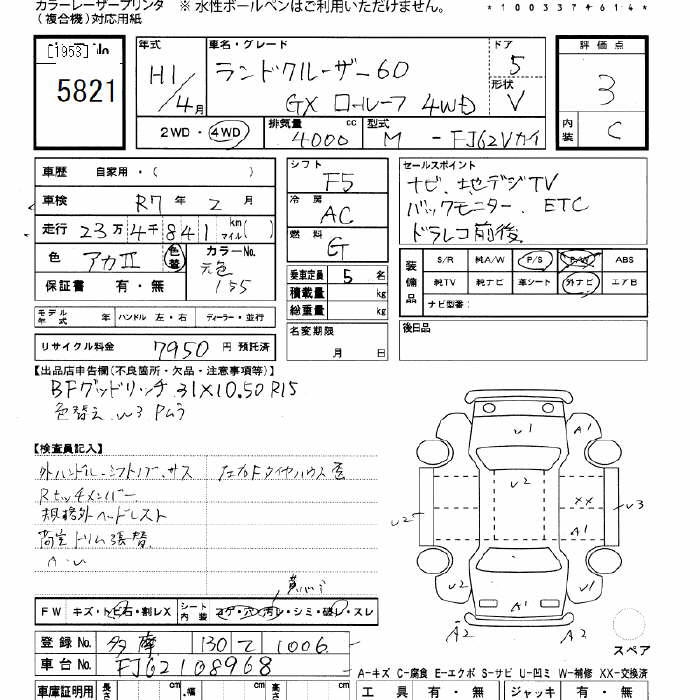 カラーレーザープリンタ ※ 水性ボールペンはご利用いただけません。 *10033746​14*
(複合機)対応用紙
[1953] No
5821
年式 H1/4月
車名・グレード ランドクルーザー60
GX ロールーフ 4WD
ドア 5
形状 V
評価点 3
内装 C
2WD・4WD 排気量 4000 cc 型式 M - FJ62Vカイ
車歴 自家用・( )
車検 R7年 2月
走行 23万4千841 km マイル( )
色 アカII 色替 カラーNo. 元色 155
保証書 有・無
シフト F5
冷房 AC
燃料 G
乗車定員 5名
積載量 kg
総重量 kg
セールスポイント
ナビ、地デジTV
バックモニター、ETC
ドラレコ前後
装備品 S/R 純A/W P/S P/W ABS
純TV 純ナビ 革シート 外ナビ エアB
ナビ型番:
モデル年式 年 ハンドル 左・右 ディーラー・並行
名変期限 月 日
後日品
リサイクル料金 7950円 預託済
【出品店申告欄(不良箇所・欠品・注意事項等)】
BFグッドリッチ 31X10.50R15
色替え
【検査員記入】
外ハンドル、シフトノブ、サス
Rセッチメンバー
規格外ヘッドレスト
高定ドリム張替
U1
A1
U2
XX
U2
U3
A1
U2
A1
U2
A2
A2
スペア
FW キズ・トビ石・割レX シート内装 コゲ・穴・汚レ・シミ・破レ・スレ
登録No. 多摩 130 て 1006
車台No. FJ62108968
A-キズ C-腐食 E-エクボ S-サビ U-凹ミ W-補修 XX-交換済
車庫証明用 長さ cm 幅 cm 高さ cm
工具 有・無 ジャッキ 有・無